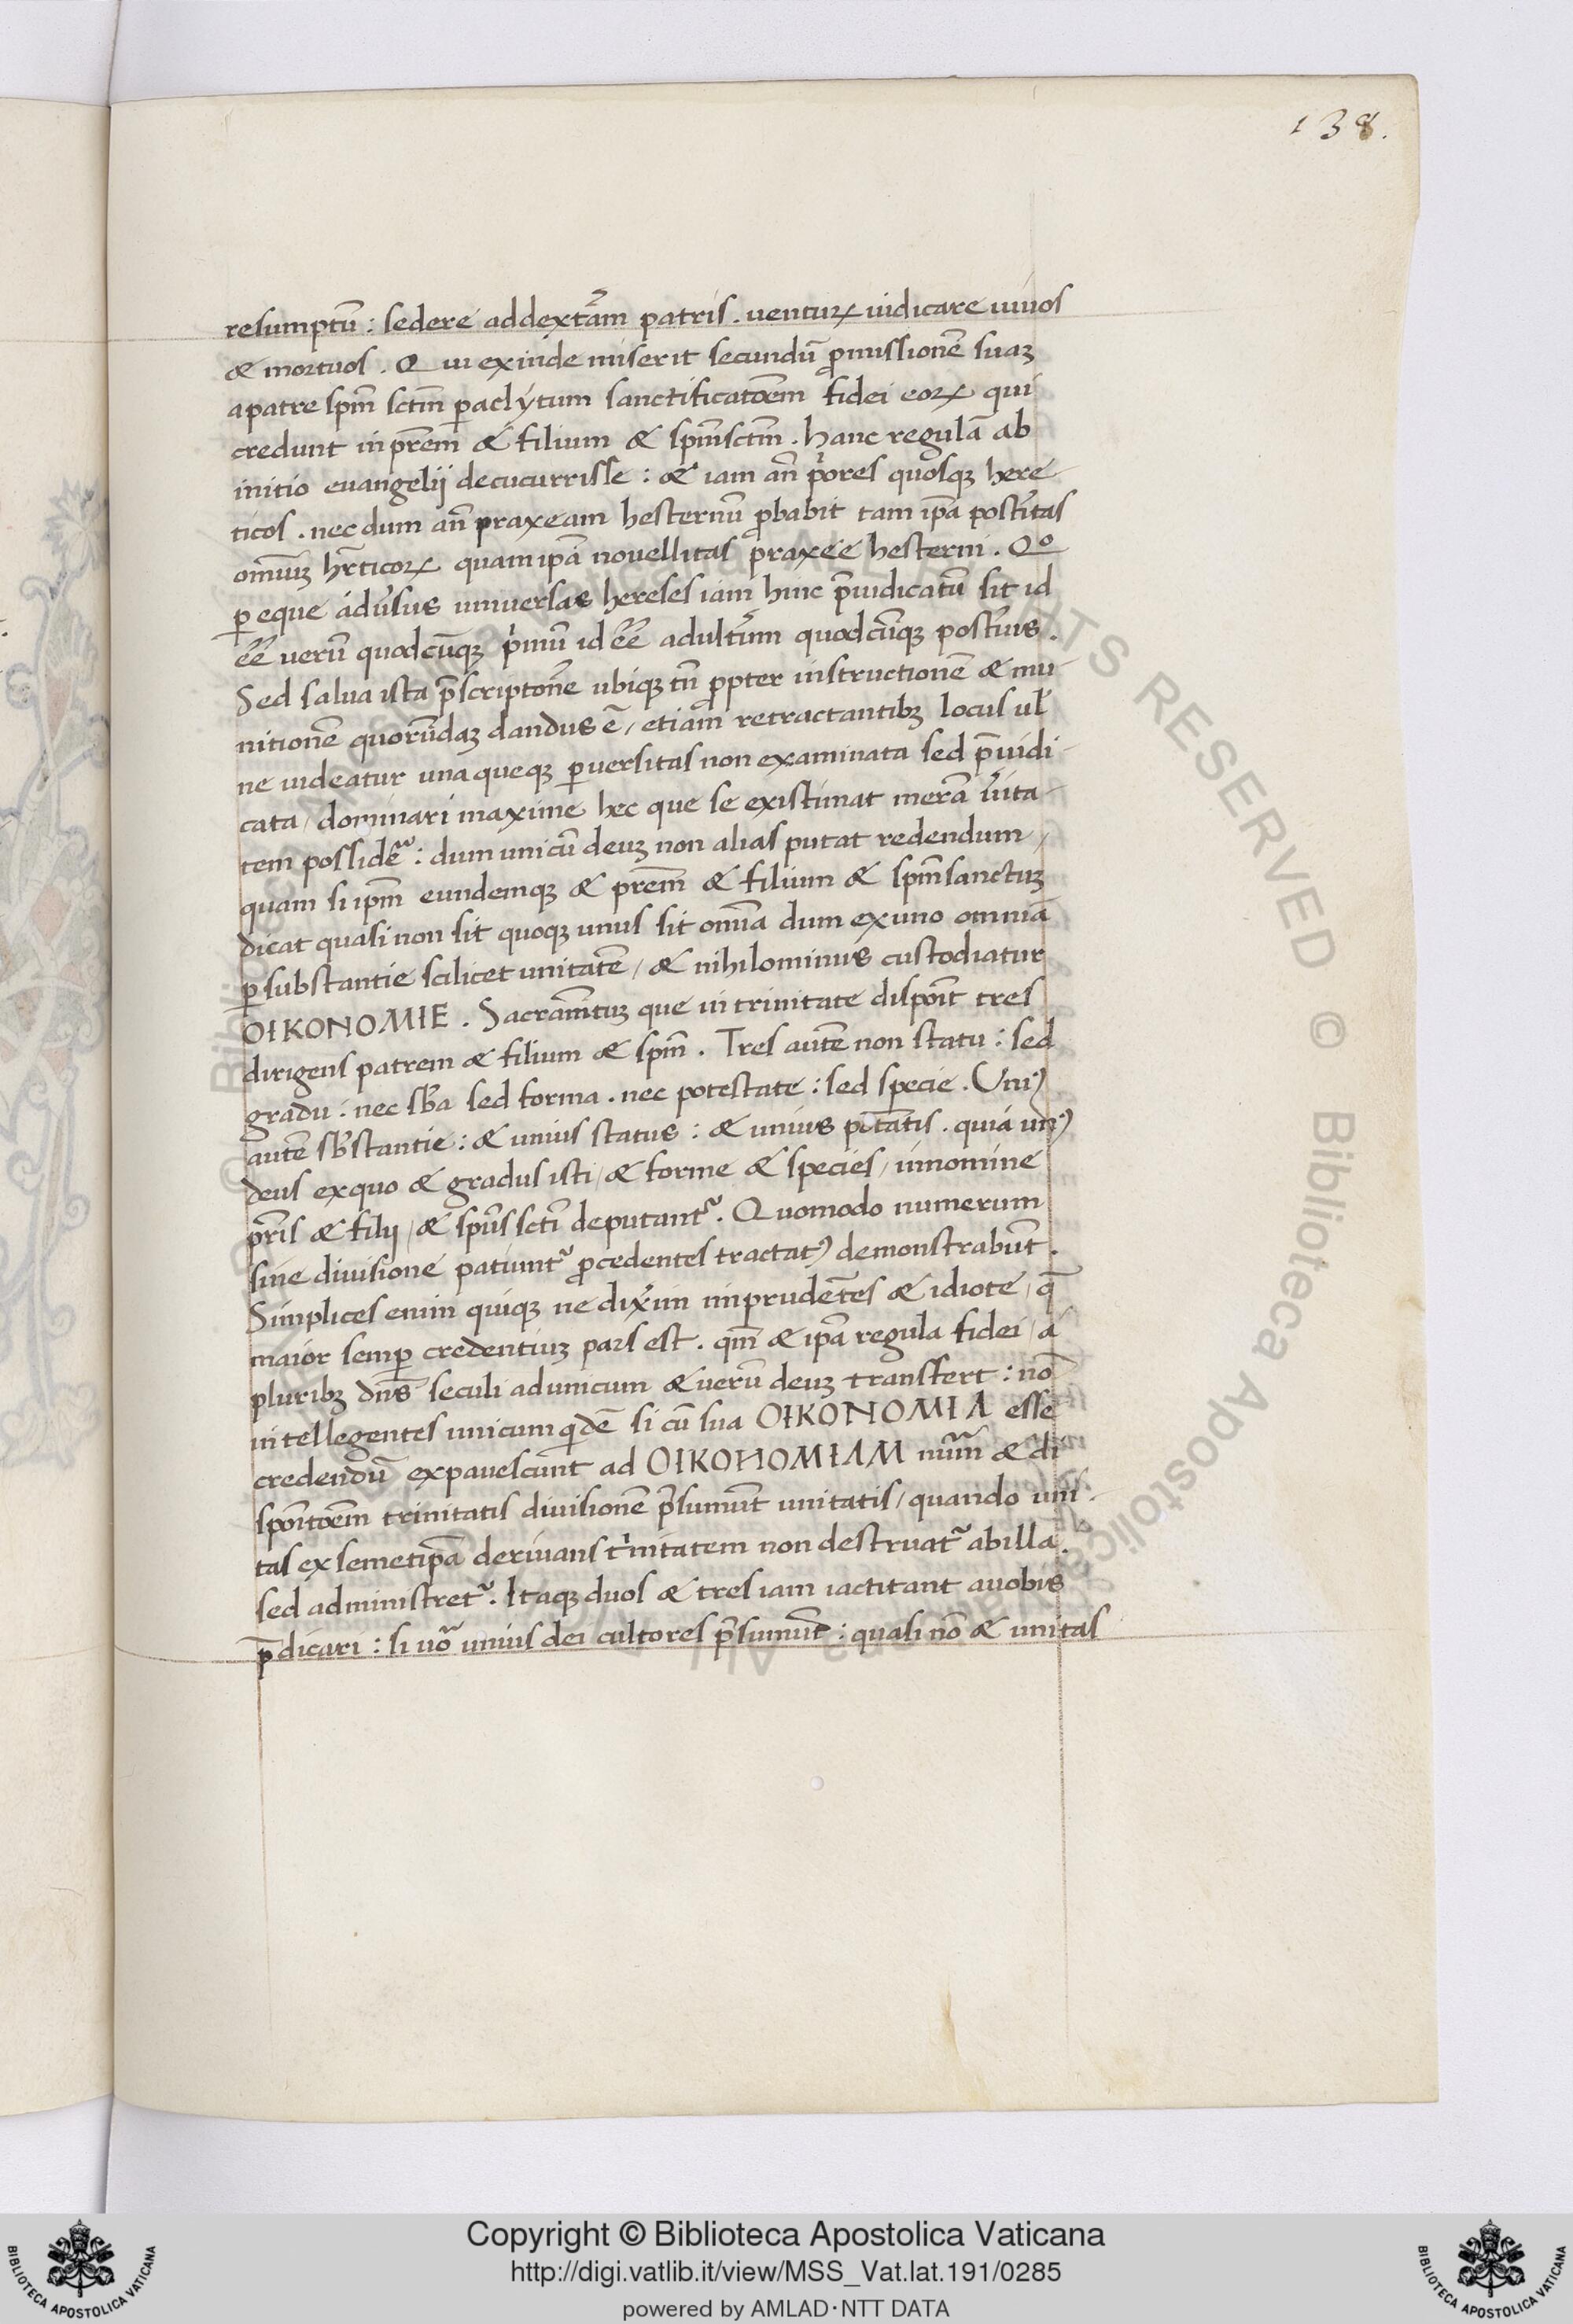 138.
resumptū : sedere addext̄am patris . venturꝝ iudicare uiuos
& mortuos . Qui exinde miserit secundū ꝓmissionē suaꝫ
apatre spm̄ sctm̄ ꝑaclýtum sanctificatōem fidei eorꝝ qui
credunt in prēm & filium & spm̄sctm̄ . hanc regulā ab
initio euangelij decucurrisse : & iam an̄ pͥores quosqꝫ here
ticos . nec dum an̄ praxeam hesternū ꝓbabit tam ip̄a post̄itas
omniuꝫ hr̄ticorꝝ quam ip̄a nouellitas praxee hesterni . Qº
ꝑ eque adu̓sus uniuersas hereses iam hinc p̄iudicatū sit id
ēē uerū quodcūqꝫ pͥmū id ēē adult̄um quodcūqꝫ post̄ius .
Sed salua ista p̄scriptōne ubiqꝫ tn̄ ꝓpter instructionē & mu
nitionē quorūdaꝫ dandus ē / etiam retractantibꝫ locus ul̄
ne uideatur una queqꝫ ꝑuersitas non examinata sed p̄iudi
cata / dominari maxime hec que se existimat merā u̓ita
tem possidēr : dum unicū deuꝫ non alias putat redendum /
quam si ipm̄ eundemqꝫ & prēm & filium & spm̄sanctuꝫ
dicat quasi non sit quoqꝫ unus sit omīa dum ex uno omnia
ꝑ substantie scilicet unitatē / & nihilominus custodiatur
OIKONOMIE . Sacramētuꝫ que in trinitate dispoīt tres
dirigens patrem & filium & spm̄ . Tres autē non statu : sed
gradu : nec sb̄a sed forma . nec potestate : sed specie . Uniꝰ
autē sb̄stantie : & unius status : & unius ptātis . quia unꝰ
deus exquo & gradus isti / & forme & species / innomine
pr̄is & filij / & spūs scti̅ deputantᷣ . Quomodo numerum
sine diuisione patiuntᷣ ꝓcedentes tractatꝰ demonstrabūt .
Simplices enim quiqꝫ ne dixi̓m imprudētes & idiote / q̄
maior semꝑ credentiuꝫ pars est . qm̄ & ip̄a regula fidei / a
pluribꝫ dn̄s seculi adunicum & uerū deuꝫ transfert : nō
intellegentes unicum qͥdē si cū sua OIKONOMIA esse
credendū expauescunt ad OIKONOMIAM num̄ & di
spoītōem trinitatis diuisionē p̄sumūt unitatis / quando uni
tas ex semetip̄a deriuans tͥnitatem non destruatᷣ abilla .
sed administretᷣ . Itaqꝫ duos & tres iam iactitant auobis
p̄dicari : si uo̅ unius dei cultores p̄sumūt : quasi nō & unitas
© Biblioteca Apostolica Vaticana ALL RIGHTS RESERVED
Copyright © Biblioteca Apostolica Vaticana
http://digi.vatlib.it/view/MSS_Vat.lat.191/0285
powered by AMLAD·NTT DATA
BIBLIOTECA APOSTOLICA VATICANA
BIBLIOTECA APOSTOLICA VATICANA